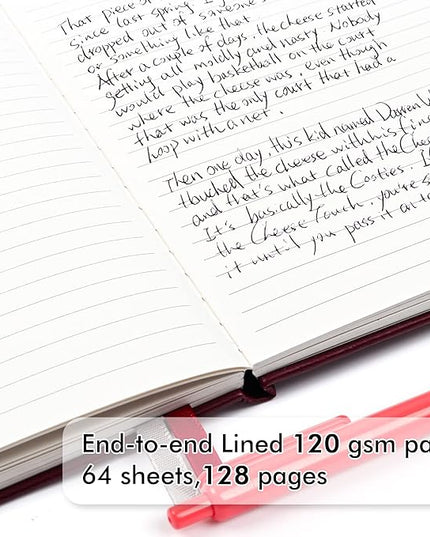 That piece of
since last spring
dropped out of someone
or something like that
After a couple of days, the cheese started
getting all moldly and nasty. Nobody
would play basketball on the court
where the cheese was. even though
that was the only court that had a
hoop with a net.
Then one day, this kid named Darren
touched the cheese with his
and that's what called the Chee
It's basically the Cooties.
the Cheese Touch. you're
it until you pass it on to
End-to-end Lined 120 gsm pa
64 sheets,128 pages